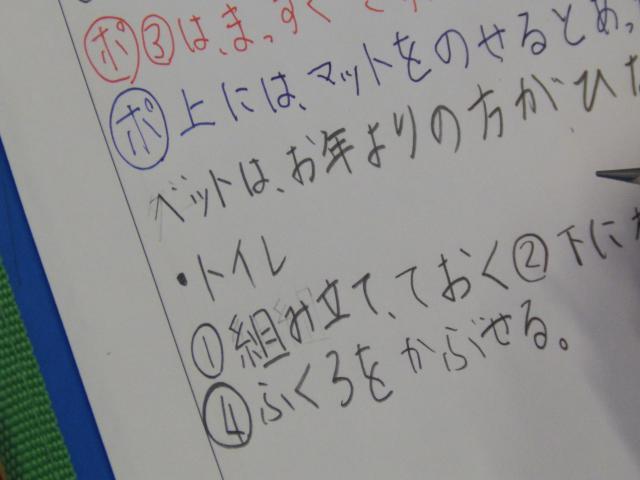 ポ③は、まっすぐ
ポ 上には、マットをのせるとあっ
ベットは、お年よりの方がひ
・トイレ
①組み立て、ておく②下に
④ふくろをかぶせる。